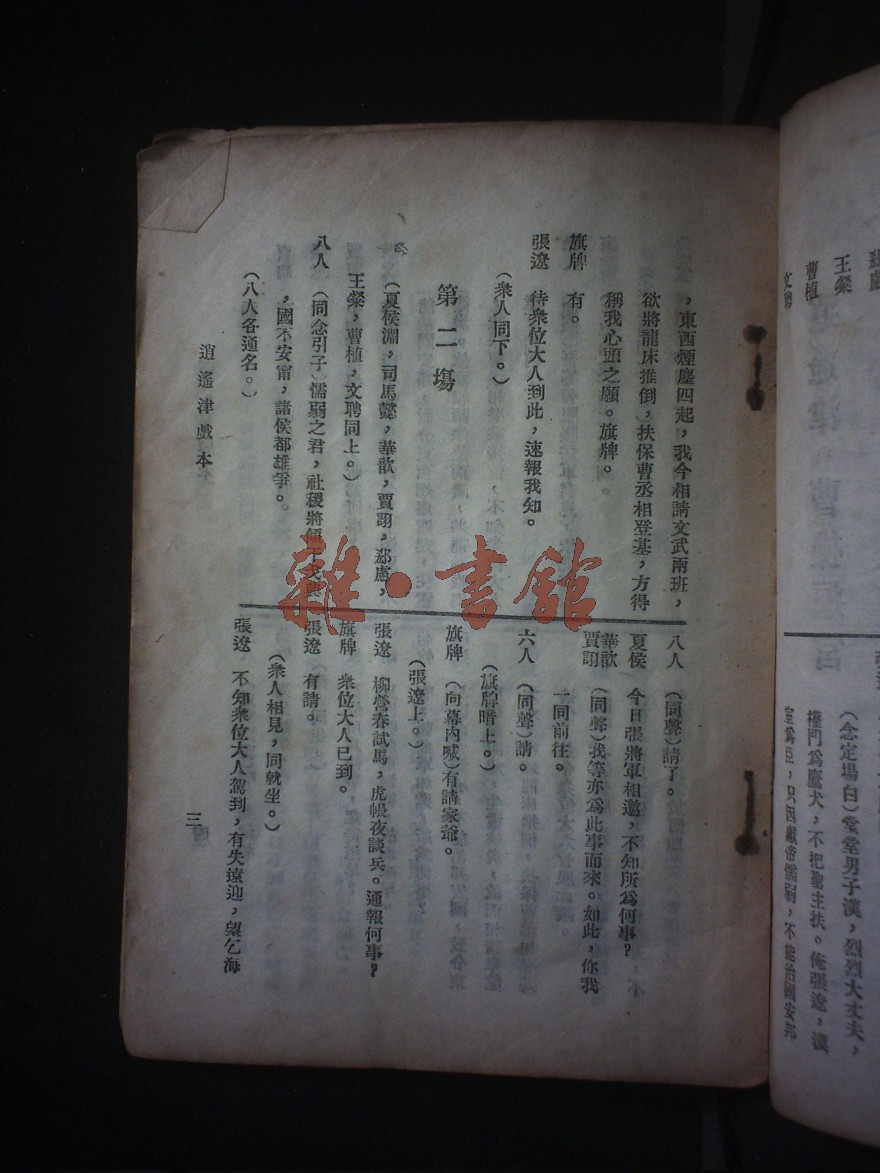 ，東西煙塵四起，我今相請文武兩班，
欲將龍床推倒，扶保曹丞相登基，方得
稱我心頭之願。旗牌。
旗牌　有。
張遼　待衆位大人到此，速報我知。
（衆人同下。）
第二塲
（夏侯淵，司馬懿，華歆，賈詡，郄慮，
王粲，曹植，文聘同上。）
八人　（同念引子）懦弱之君，社稷將傾
，國不安甯，諸侯都雄爭。
（八人各通名。）
八人　（同聲）請了。
夏侯　今日張將軍相邀，不知所爲何事？
華歆
賈詡　（同聲）我等亦爲此事而來。如此，你我
一同前往。
六人　（同聲）請。
（旗牌暗上。）
旗牌　（向幕內喊）有請家爺。
（張遼上。）
張遼　柳營春試馬，虎帳夜談兵。通報何事？
旗牌　衆位大人已到。
張遼　有請。
（衆人相見，同就坐。）
張遼　不知衆位大人駕到，有失遠迎，望乞海
逍遙津戲本
三
雜·書館
王粲
曹植
文聘
（念定場白）堂堂男子漢，烈烈大丈夫，
權門爲鷹犬，不把聖主扶。俺張遼，漢
室爲臣，只因獻帝懦弱，不能治國安邦